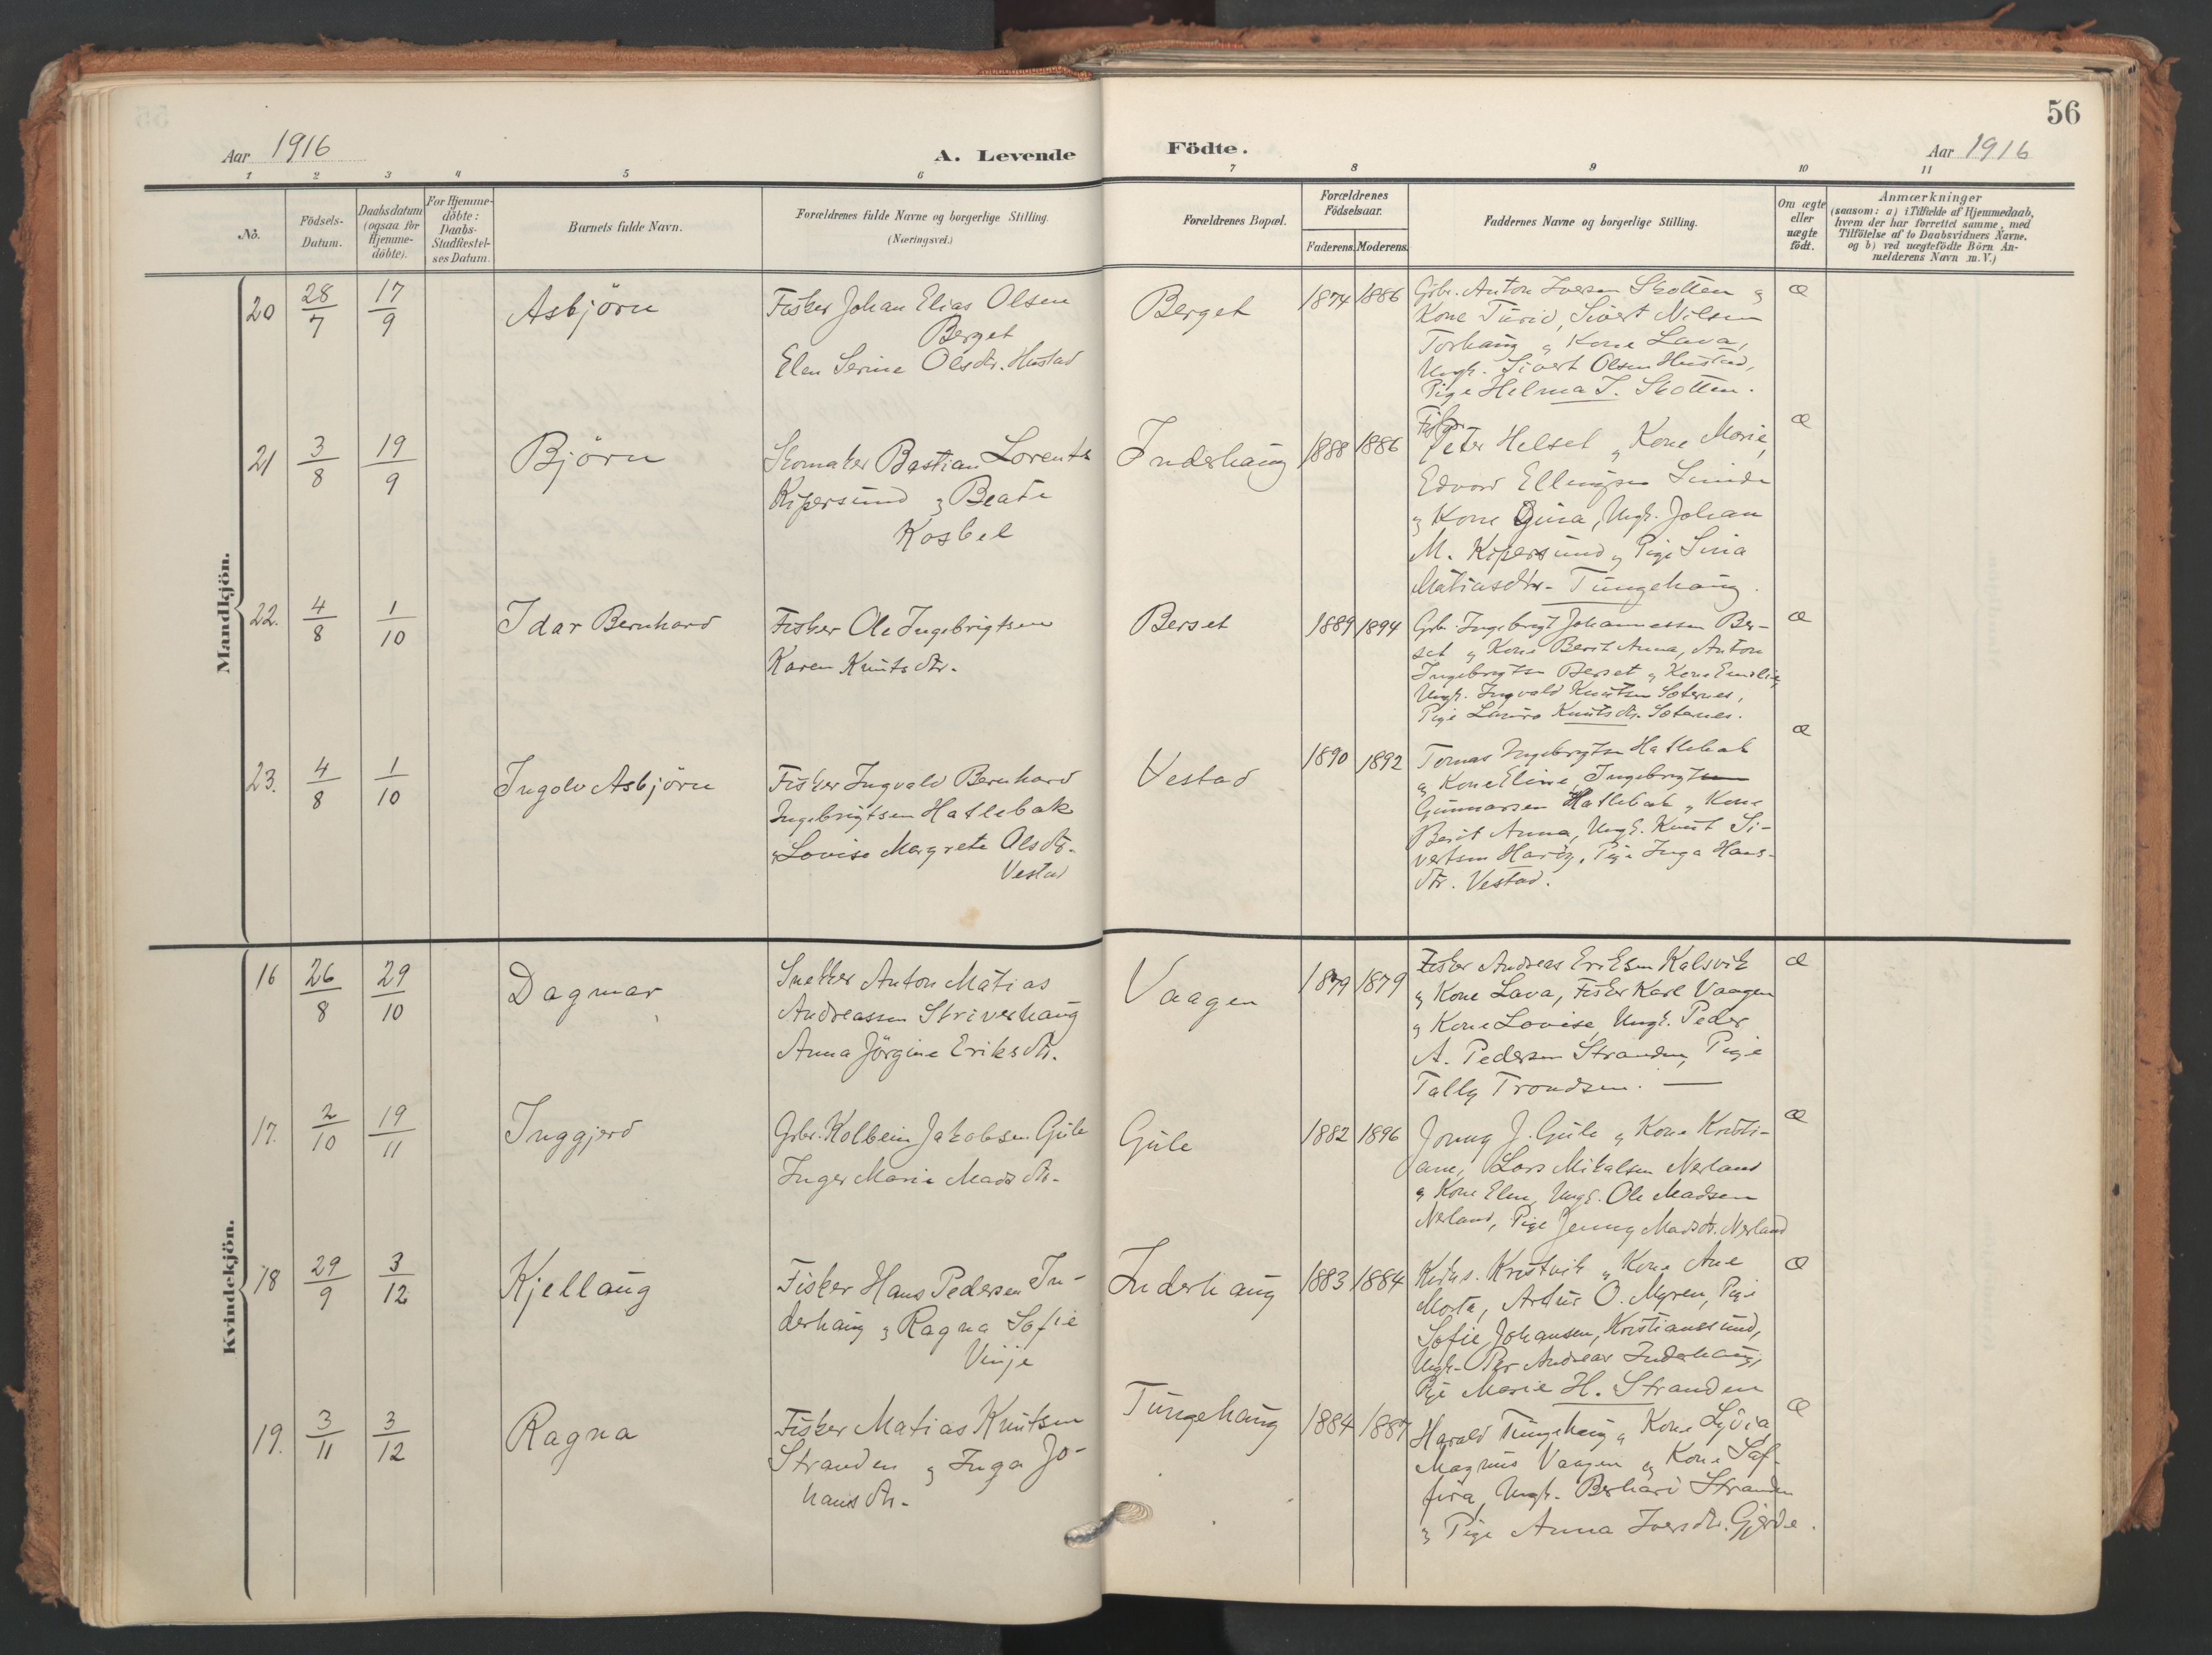 56
Aar 1916
A. Levende Födte.
Aar 1916
1 2 3 4 5 6 7 8 9 10 11
Nö.
Födsels-
Datum.
Daabsdatum
(ogsaa for
Hjemme-
döbte).
For Hjemme-
döbte:
Daabs-
Stadfæstel-
ses Datum.
Barnets fulde Navn.
Forældrenes fulde Navne og borgerlige Stilling.
(Næringsvei.)
Forældrenes Bopæl.
Forældrenes
Födselsaar.
Faderens. Moderens.
Faddernes Navne og borgerlige Stilling.
Om ægte
eller
uægte
födt.
Anmærkninger
(saasom: a) i Tilfælde af Hjemmedaab,
hvem der har forrettet samme, med
Tilföielse af to Daabsvidners Navne,
og b) ved uægtefödte Börn An-
melderens Navn m. V.)
Mandkjön.
20 28/7 17/9 Asbjörn
Fisker Johan Elias Olsen
Berget
Elen Serine Olsdtr. Hustad
Berget 1874 1886
Grbr. Anton Iversen Skotten &
Kone Turid, Sivert Nilsen
Torhaug & Kone Lava,
Ungk. Sivert Olsen Hustad,
Pige Helma I. Skotten.
æ
21 3/8 19/9 Björn
Skomaker Bastian Lorents
Kipersund & Beate
Kosbel
Inderhaug 1888 1886
Fisker
Peter Helset & Kone Marie,
Edvard Ellingsen
& Kone Gina, Ungk. Johan
M. Kipersund & Pige
Matiasdtr. Tungehaug.
æ
22. 4/8 1/10 Idar Bernhard
Fisker Ole Ingebrigtsen
Karen Knutsdtr.
Berset 1889 1894
Grb. Ingebrigt Johannessen Ber-
set & Kone Berit Anna, Anton
Ingebrigtsen Berset & Kone Emilie,
Ungk. Ingvald Knutsen Sotenes,
Pige Laura Knutsdtr. Sotenes.
æ
23. 4/8 1/10 Ingolv Asbjörn
Fisker Ingvald Bernhard
Ingebrigtsen Hatlebak
& Lovise Margrete Olsdtr.
Vestad
Vestad 1890 1892
Tomas Ingebrigtsen Hatlebak
& Kone Eline, Ingebrigtsen
Gunnarsen Hatlebak & Kone
Berit Anna, Ungk. Knut Si-
vertsen Haröy, Pige Inga Hans-
dtr. Vestad.
æ
Kvindekjön.
16 26/8 29/10 Dagmar
Snekker Anton Matias
Andreassen Skriverhaug
Anna Jörgine Eriksdtr.
Vaagen 1879 1879
Fisker Andreas Eriksen Kalsvik
& Kone Lava, Fisker Karl Vaagen
& Kone Lovise, Ungk. Peder
A. Pedersen Stranden, Pige
Tally Trondsen.
æ
17. 2/10 19/11 Inggjerd
Grbr. Kolbein Jakobsen Gule
Inger Marie Madsdtr.
Gule 1882 1896
Jonny J. Gule & Kone Kristi-
ane, Lars Mikalsen Nerland
& Kone Elen, Ungk. Ole Madsen
Nerland, Pige Jenny Madsdtr. Nerland
æ
18 29/9 3/12 Kjellaug
Fisker Hans Pedersen In-
derhaug & Ragna Sofie
Vinje
Inderhaug 1883 1884
Kristvik & Kone Ane
Marta, Artur O. Myren, Pige
Sofie Johansen, Kristianssund,
Ungk. Per Andreas Inderhaug,
Pige Marie H. Stranden
æ
19. 3/11 3/12 Ragna
Fisker Matias Knutsen
Stranden & Inga Jo-
hansdtr.
Tungehaug 1884 1887
Harald Tungehaug & Kone Lyvia,
Magnus Vaagen & Kone Saf-
fira, Ungk. Berhard Stranden
& Pige Anna Iversdtr. Gjerde.
æ